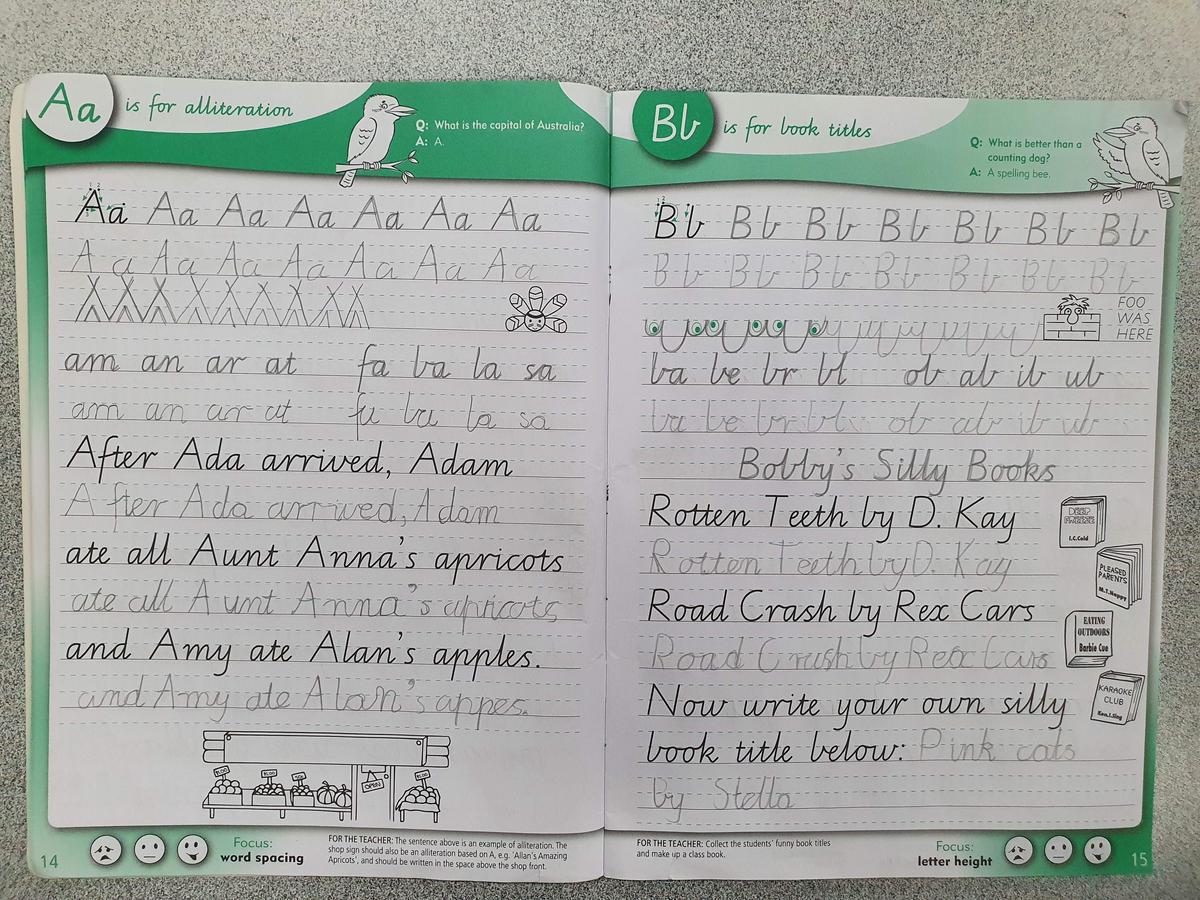 Aa is for alliteration
Q: What is the capital of Australia?
A: A.
Aa Aa Aa Aa Aa Aa Aa
Aa Aa Aa Aa Aa Aa Aa
am an ar at fa ba la sa
am an ar at fa ba la sa
After Ada arrived, Adam
After Ada arrived, Adam
ate all Aunt Anna's apricots
ate all Aunt Anna's apricots
and Amy ate Alan's apples.
and Amy ate Alan's appes.
OPEN
14
Focus:
word spacing
FOR THE TEACHER: The sentence above is an example of alliteration. The
shop sign should also be an alliteration based on A, e.g. 'Allan's Amazing
Apricots', and should be written in the space above the shop front.
Bb is for book titles
Q: What is better than a
counting dog?
A: A spelling bee.
Bb Bb Bb Bb Bb Bb Bb
Bb Bb Bb Bb Bb Bb Bb
FOO
WAS
HERE
ba be br bl ob ab ib ub
ba be br bl ob ab ib ub
Bobby's Silly Books
Rotten Teeth by D. Kay
Rotten Teeth by D. Kay
Road Crash by Rex Cars
Road Crash by Rex Cars
Now write your own silly
book title below: Pink cats
by Stella
DEEP
FREEZE
I.C.Cold
PLEASED
PARENTS
M.T.Happy
EATING
OUTDOORS
Barbie Cue
KARAOKE
CLUB
Ken.I.Sing
FOR THE TEACHER: Collect the students' funny book titles
and make up a class book.
Focus:
letter height
15